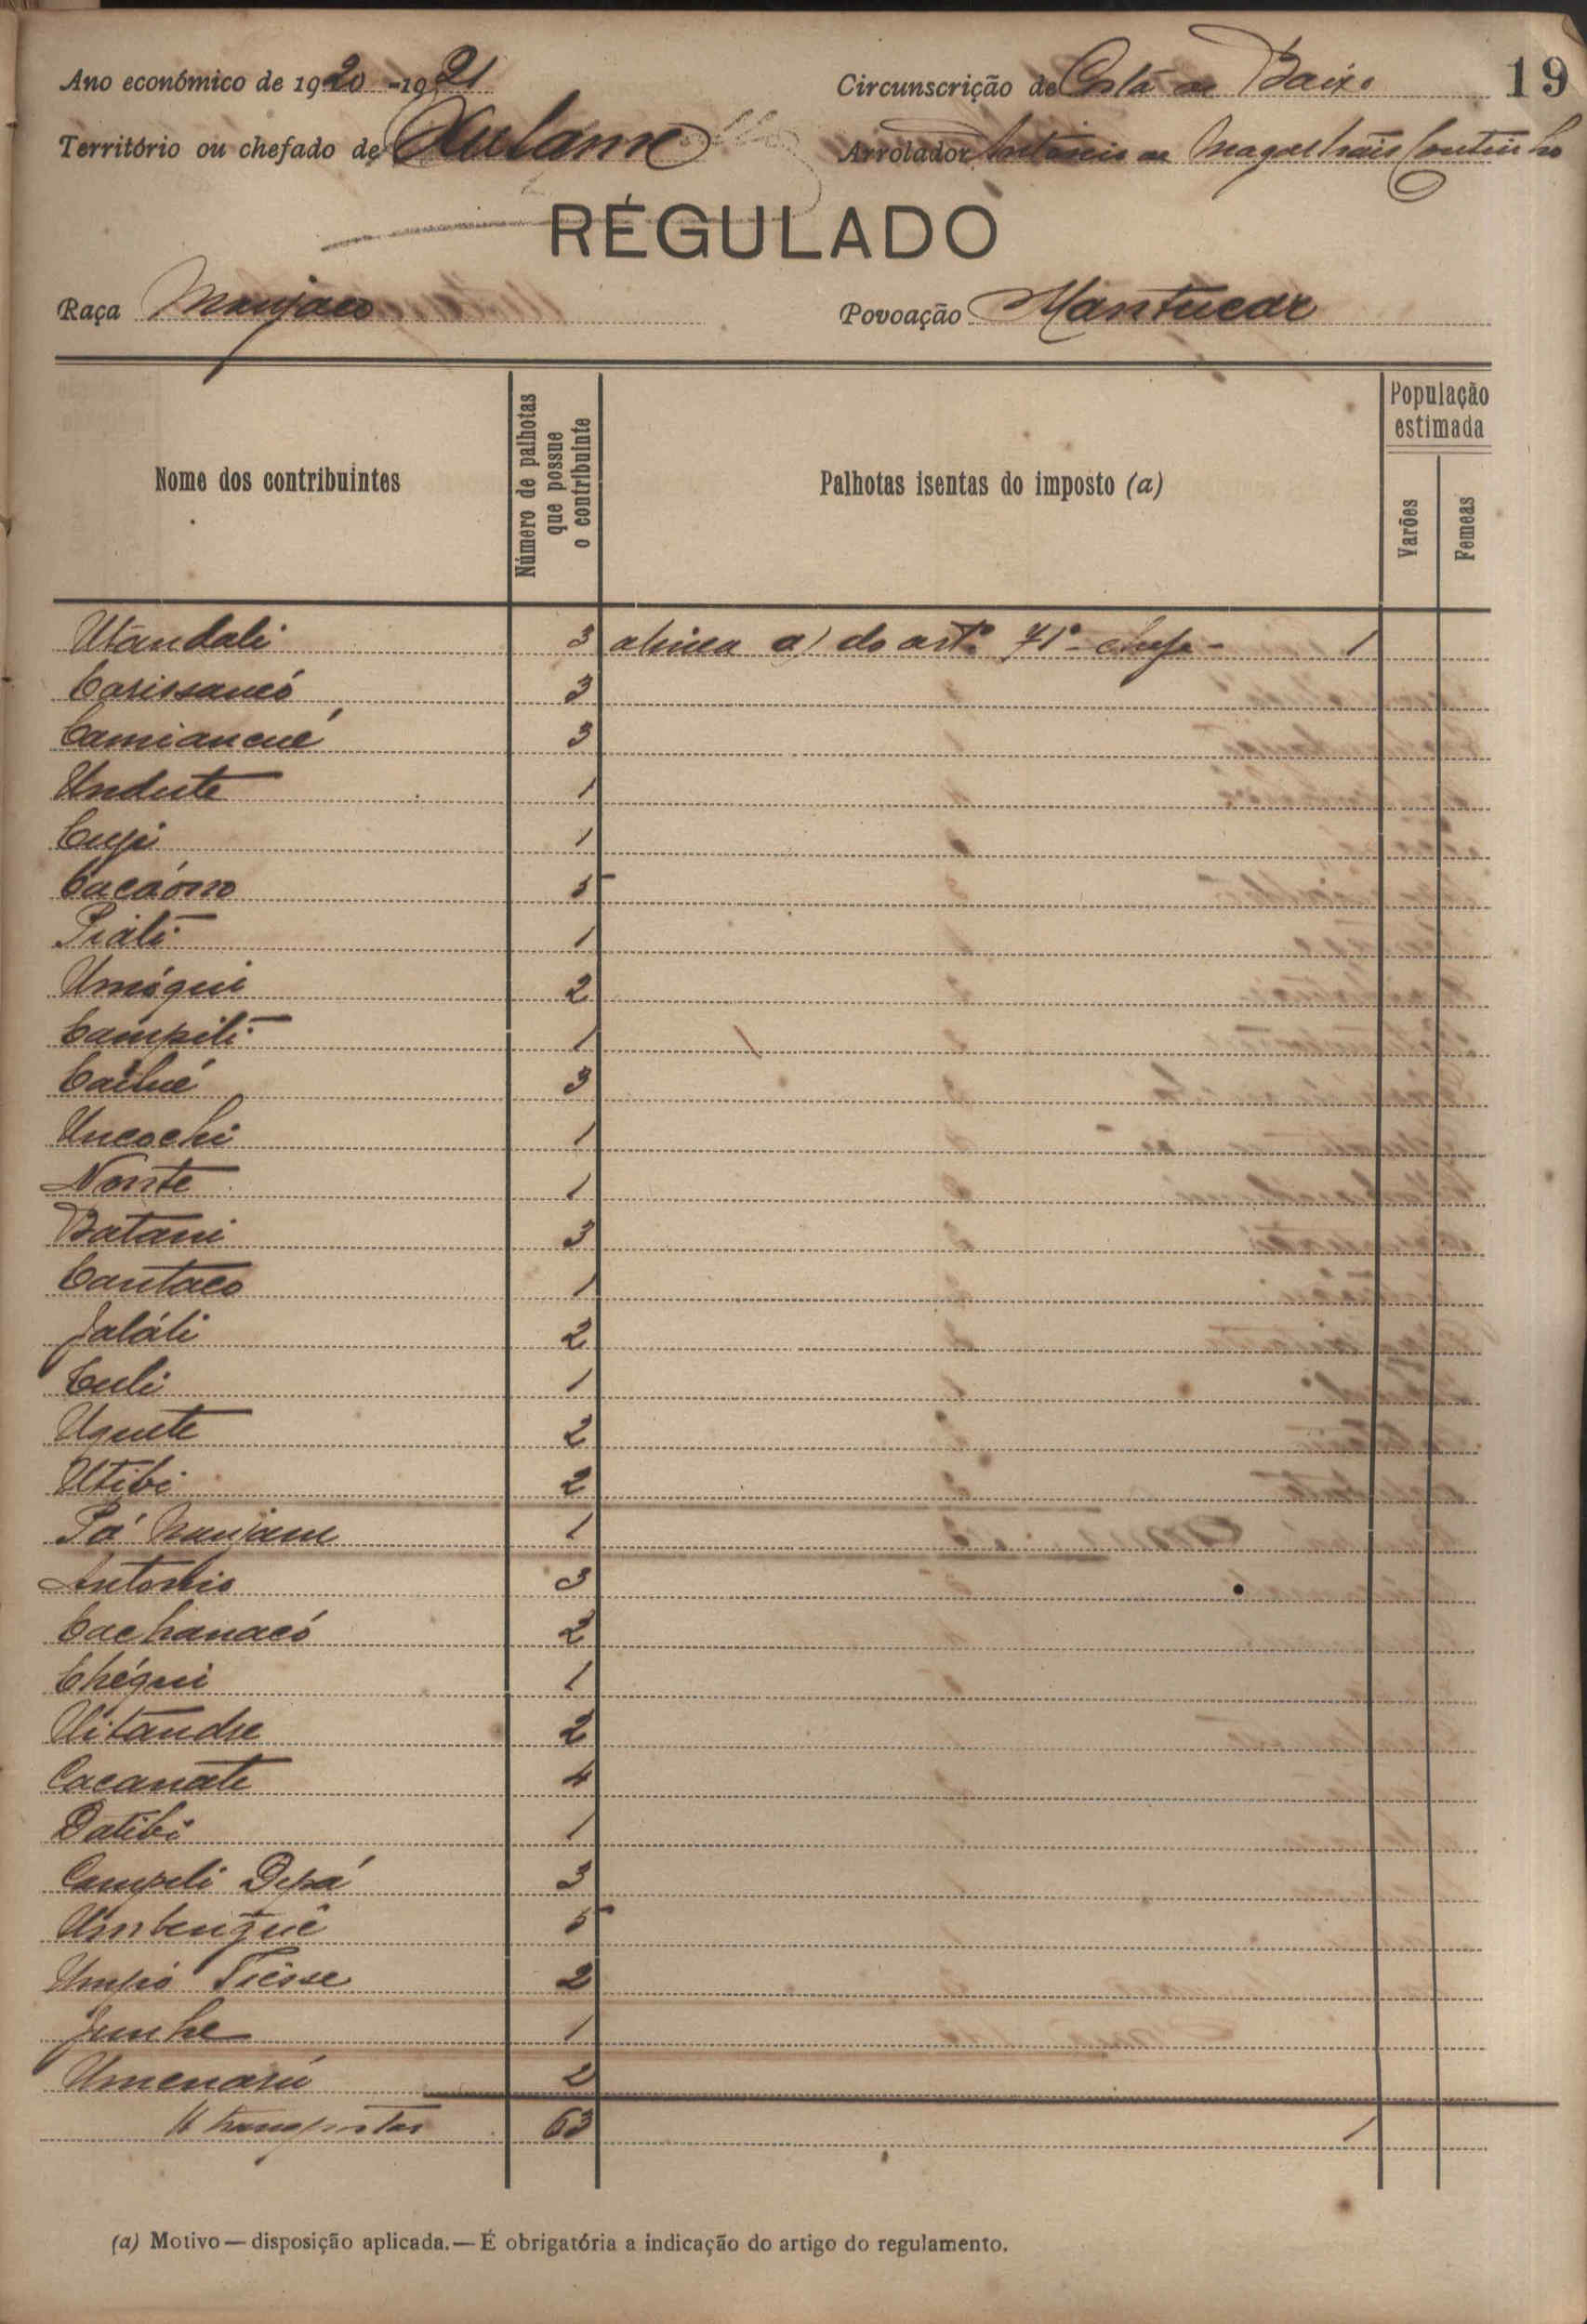 Ano económico de 1920-1921 Circunscrição de Costa de Baixo 19
Território ou chefado de Arrolador Antonio de Magalhães Coutinho
RÉGULADO
Raça Manjaco Povoação Mantucar
Nome dos contribuintes
Número de palhotas que possue o contribuinte
Palhotas isentas do imposto (a)
População estimada
Varões
Femeas
Utandali 3 alinea a) do artº 71º - chefe - 1
Carissancó 3
Camiancué 3
Undute 1
Cupi 1
Cacáomo 5
Piáli 1
Umógui 2
Campili 1
Cailué 3
Uncochi 1
Nonte 1
Batani 3
Cantaco 1
Jaláli 2
Culi 1
Uguete 2
Utibi 2
Pá Manjam 1
Antonio 3
Cachanacó 2
Chégui 1
Uitandre 2
Cacanate 4
Datibi 1
Campili Depá 3
Umbenqué 5
Umpó Tiésse 2
Junhe 1
Umenarú 2
A transportar 63 1
(a) Motivo — disposição aplicada. — É obrigatória a indicação do artigo do regulamento.